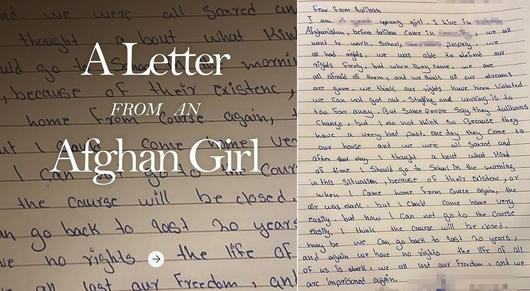 A Letter
FROM AN
Afghan Girl
we were all scared and
thought about what kind
because of their existence,
home from Course again, t
I can
the course will be closed.
an go back to last 20 years
no rights the life of
all lost our Freedom, and
Fear From taliban
I am young girl. I live in
Afghanistan, before taliban came in we all
want to work, School, properly, we
all had rights, we was able to defend our
rights Freely, but when they came, we are
all afraid of them, and we think all our dreams
are gone, we think our rights have been violated
we can not got out. Studying and working is to
too far away. But Some people Say they talibans
Change, but I do not think so Because they
have a very bad past. one day they Come to
our house and we were all Scared and
after that day I thought about what kind
of time I Should go to School in the morning
in this Situation, because of their existence, or
when I Came home from Course again, the
air was dark. but I Could Come home very
easily, but now I Can not go to the Course
easily, I think the Course will be closed.
may be we Can go back to last 20 years,
and again we have no rights the life of all
of us is dark, we all lost our Freedom, and we
are imprisoned again.